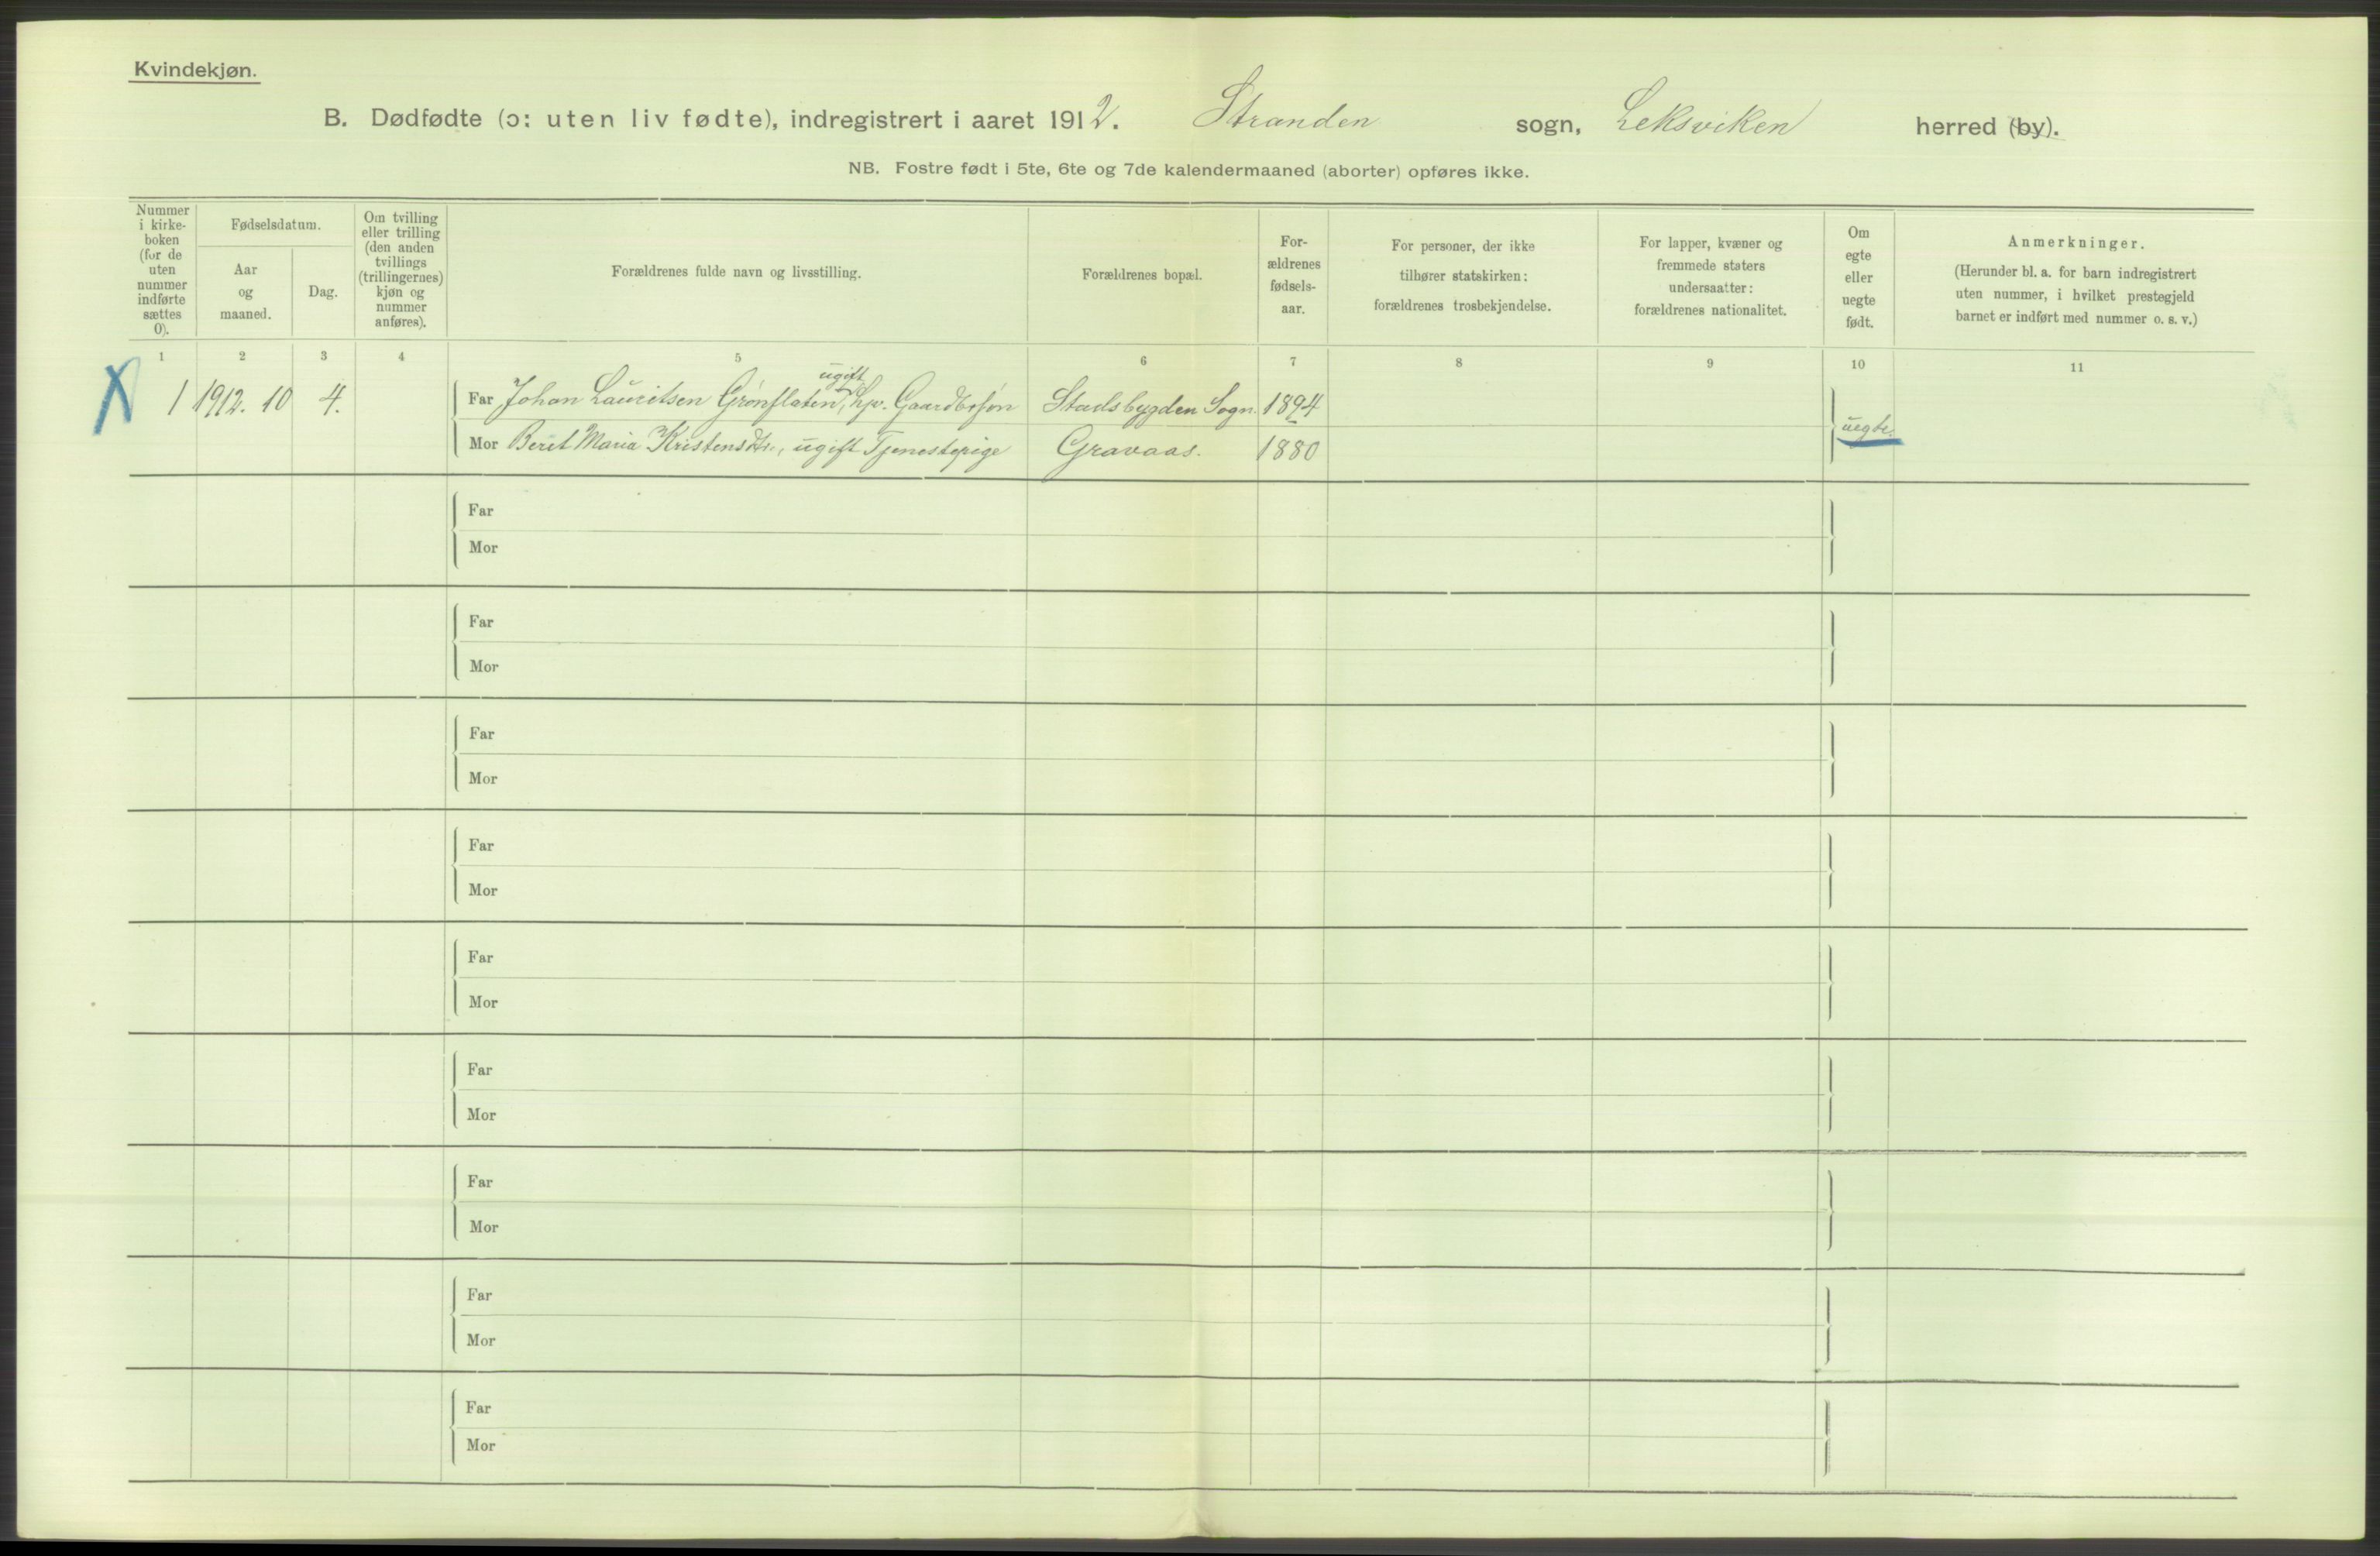 Kvindekjøn.
B. Dødfødte (ɔ: uten liv fødte), indregistrert i aaret 1912. Stranden sogn, Leksviken herred (by).
NB. Fostre født i 5te, 6te og 7de kalendermaaned (aborter) opføres ikke.
Nummer
i kirke-
boken
(for de
uten
nummer
indførte
sættes
0).
Fødselsdatum.
Aar
og
maaned.
Dag.
Om tvilling
eller trilling
(den anden
tvillings
(trillingernes)
kjøn og
nummer
anføres).
Forældrenes fulde navn og livsstilling.
Forældrenes bopæl.
For-
ældrenes
fødsels-
aar.
For personer, der ikke
tilhører statskirken:
forældrenes trosbekjendelse.
For lapper, kvæner og
fremmede staters
undersaatter:
forældrenes nationalitet.
Om
egte
eller
uegte
født.
Anmerkninger.
(Herunder bl. a. for barn indregistrert
uten nummer, i hvilket prestegjeld
barnet er indført med nummer o. s. v.)
1 2 3 4 5 6 7 8 9 10 11
ugift
1 1912. 10 4. Far Johan Lauritsen Grønflaten, Gaardbr.søn Stadsbygden Sogn. 1894
uegte.
Mor Beret Maria Kristensdtr., ugift Tjenestepige Gravaas. 1880
Far
Mor
Far
Mor
Far
Mor
Far
Mor
Far
Mor
Far
Mor
Far
Mor
Far
Mor
Far
Mor